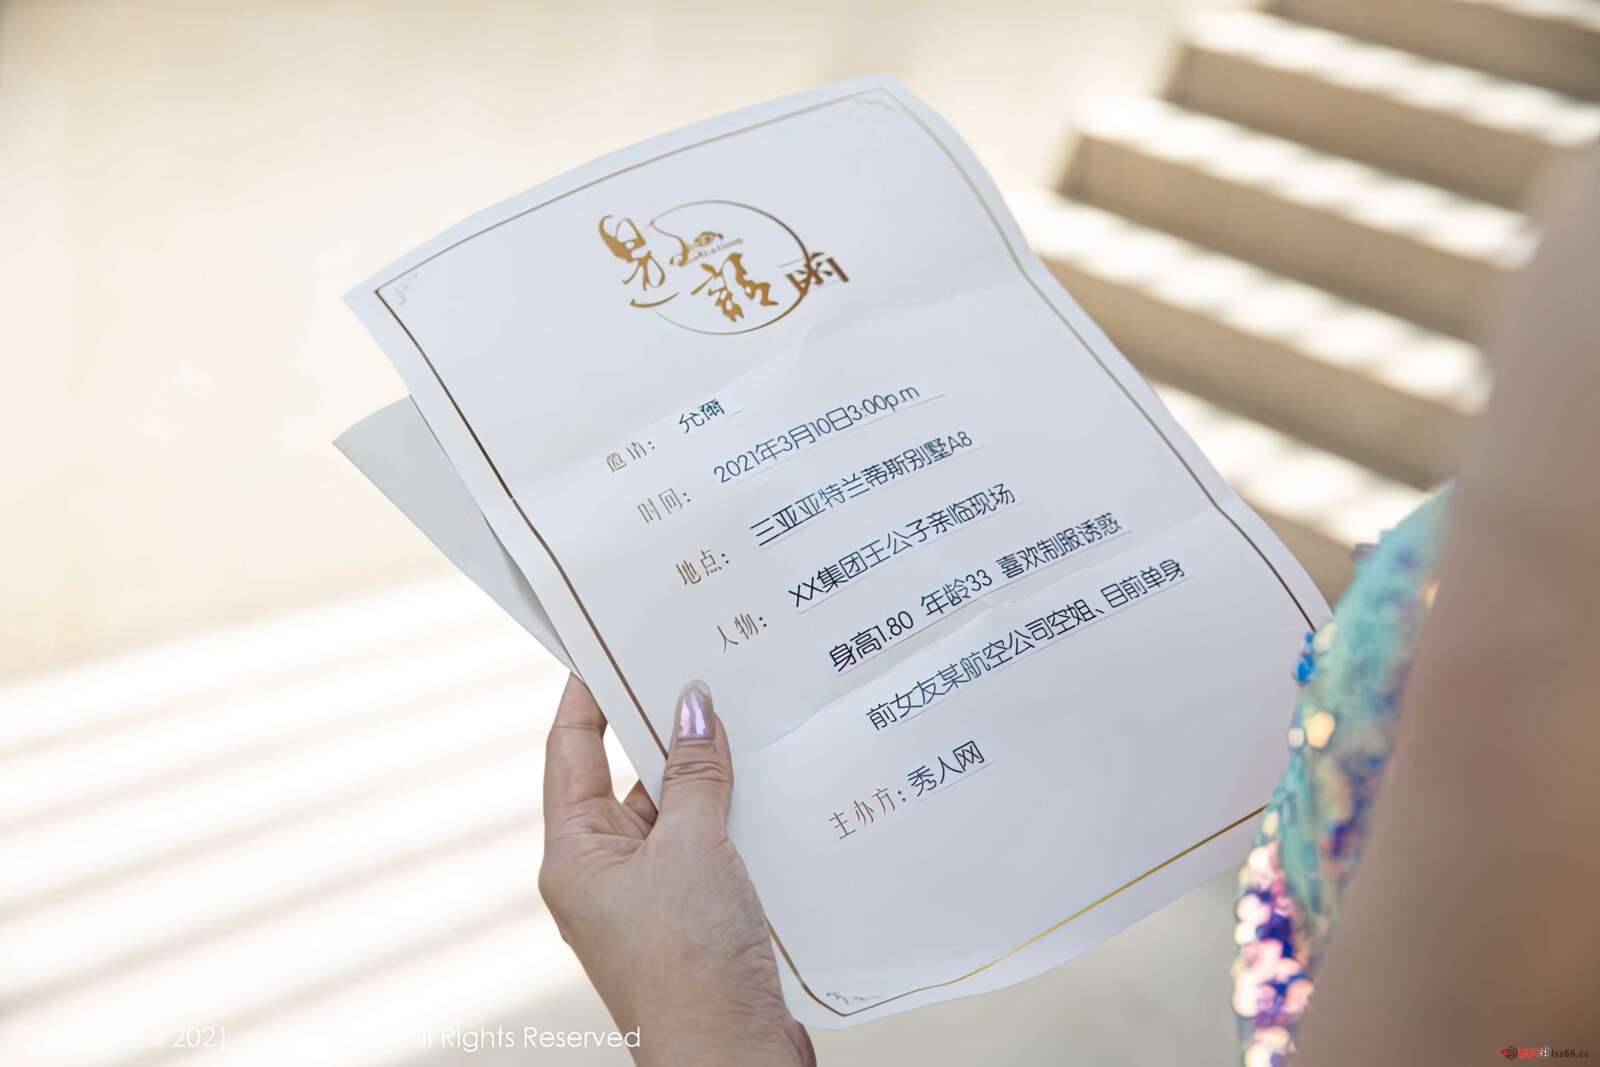 邀請函
邀请： 允爾
时间： 2021年3月10日3:00p.m
地点： 三亚亚特兰蒂斯别墅A8
人物： XX集团王公子亲临现场
身高1.80 年龄33 喜欢制服诱惑
前女友某航空公司空姐、目前单身
主办方：秀人网
2021 All Rights Reserved
lss66.cc